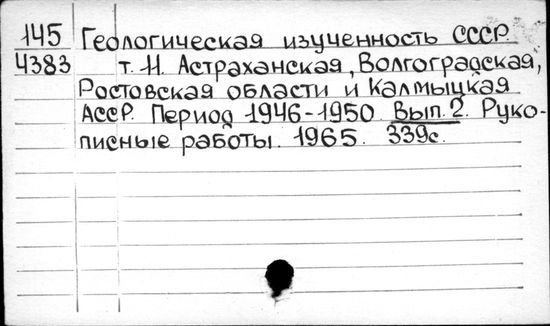 145 Геологическая изученность СССР.
4383 т. 11. Астраханская, Волгоградская,
Ростовская области и Калмыцкая
АССР. Период 1946-1950. Вып. 2. Руко-
писные работы. 1965. 339с.